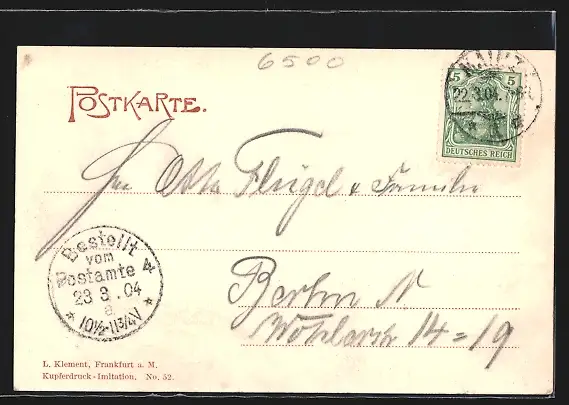 6500
POSTKARTE.
MAINZ
22.3.04.
5 5
DEUTSCHES REICH
Otto Flügel & Familie
Bestellt
vom
Postamte 4
23 3.04
a
* 10½-11¾V *
Berlin N
14=19
L. Klement, Frankfurt a. M.
Kupferdruck-Imitation. No. 52.